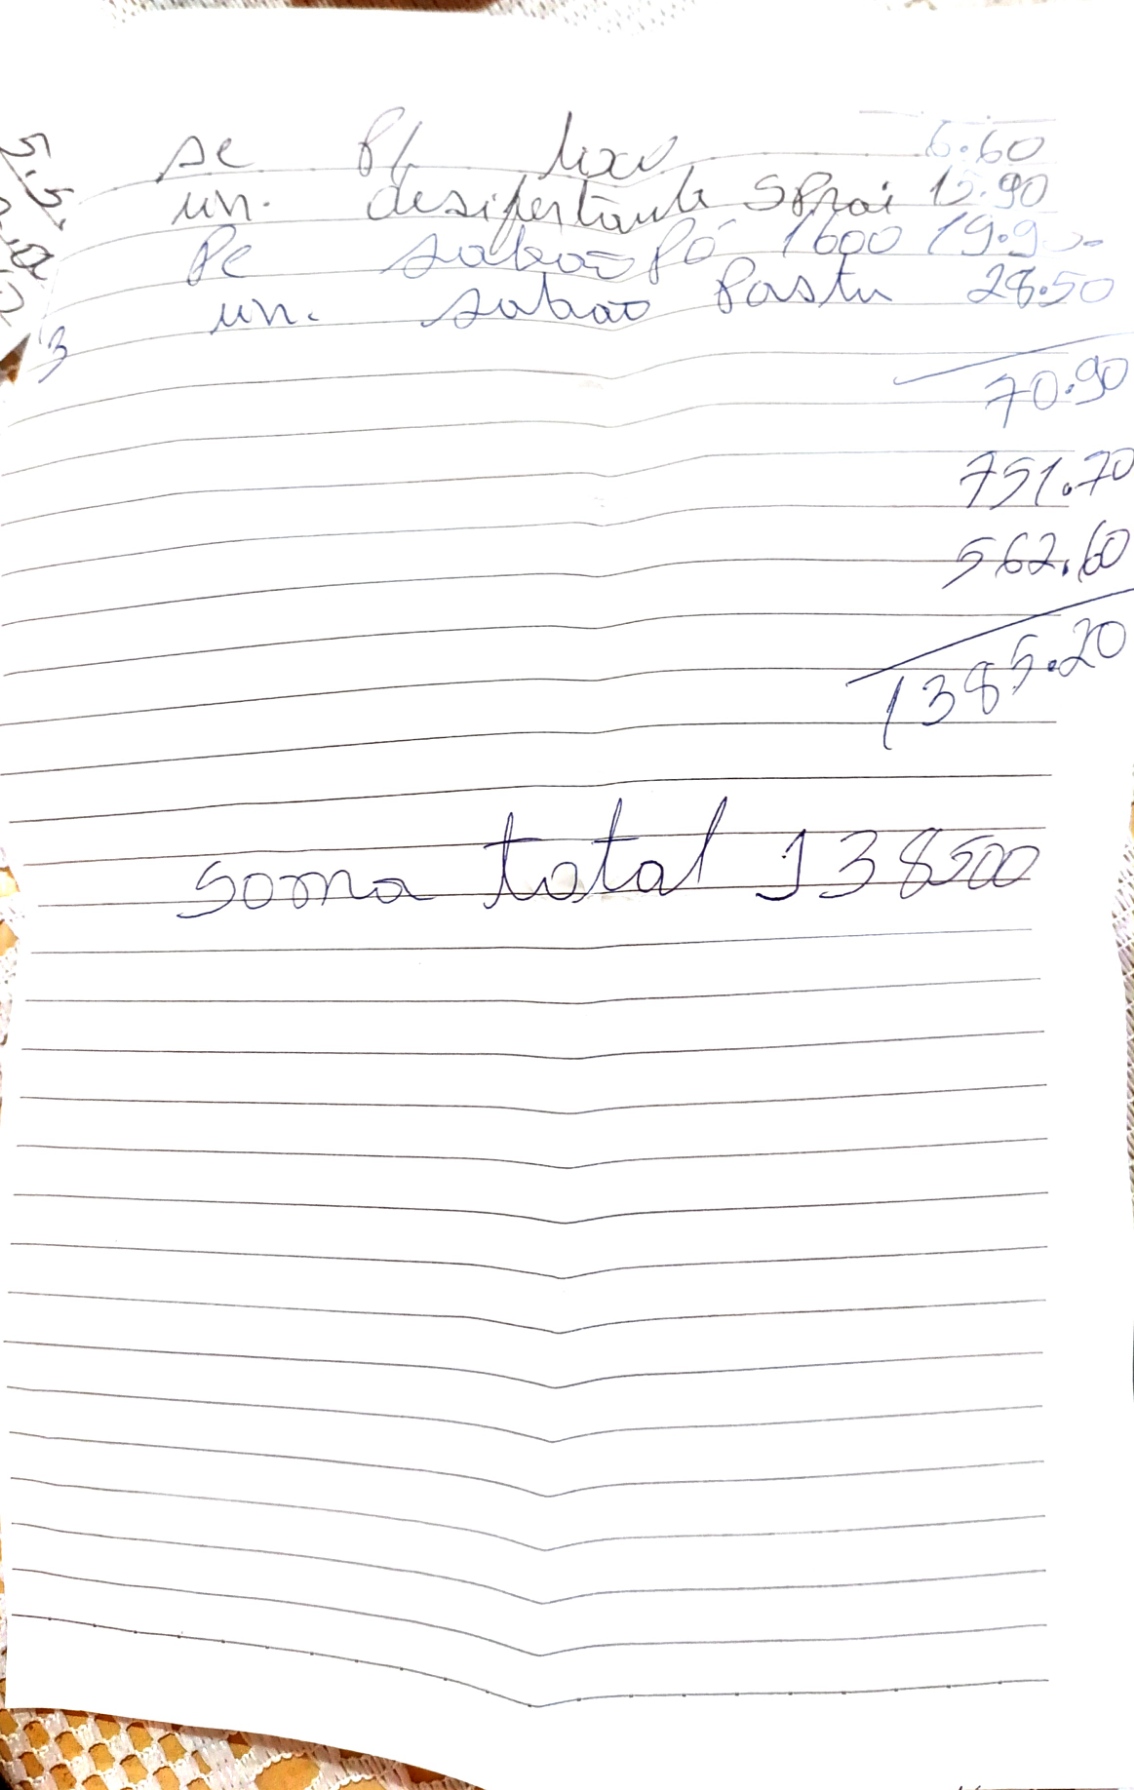 sc P/ lixo 6.60
un. desifertante Sprai 15.90
Pc sabão Pó 1600 19.90
3 un. sabao Pasta 28.50
70.90
751.70
562.60
1385.20
soma total 138500